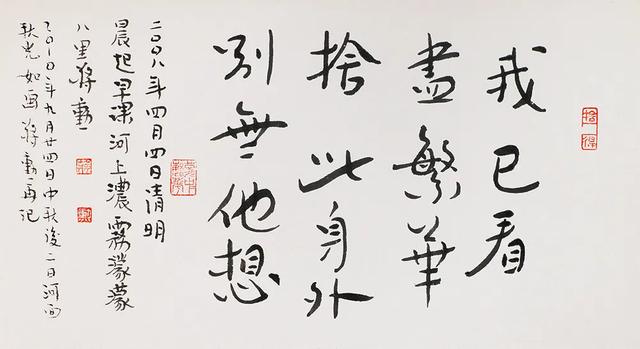 我已看
盡繁華
捨此身外
別無他想
二〇〇八年四月四日清明
晨起早課河上濃霧濛濛
八里蔣勳
二〇一〇年九月廿四日中秋後二日河面
秋光如畫蔣勳再記